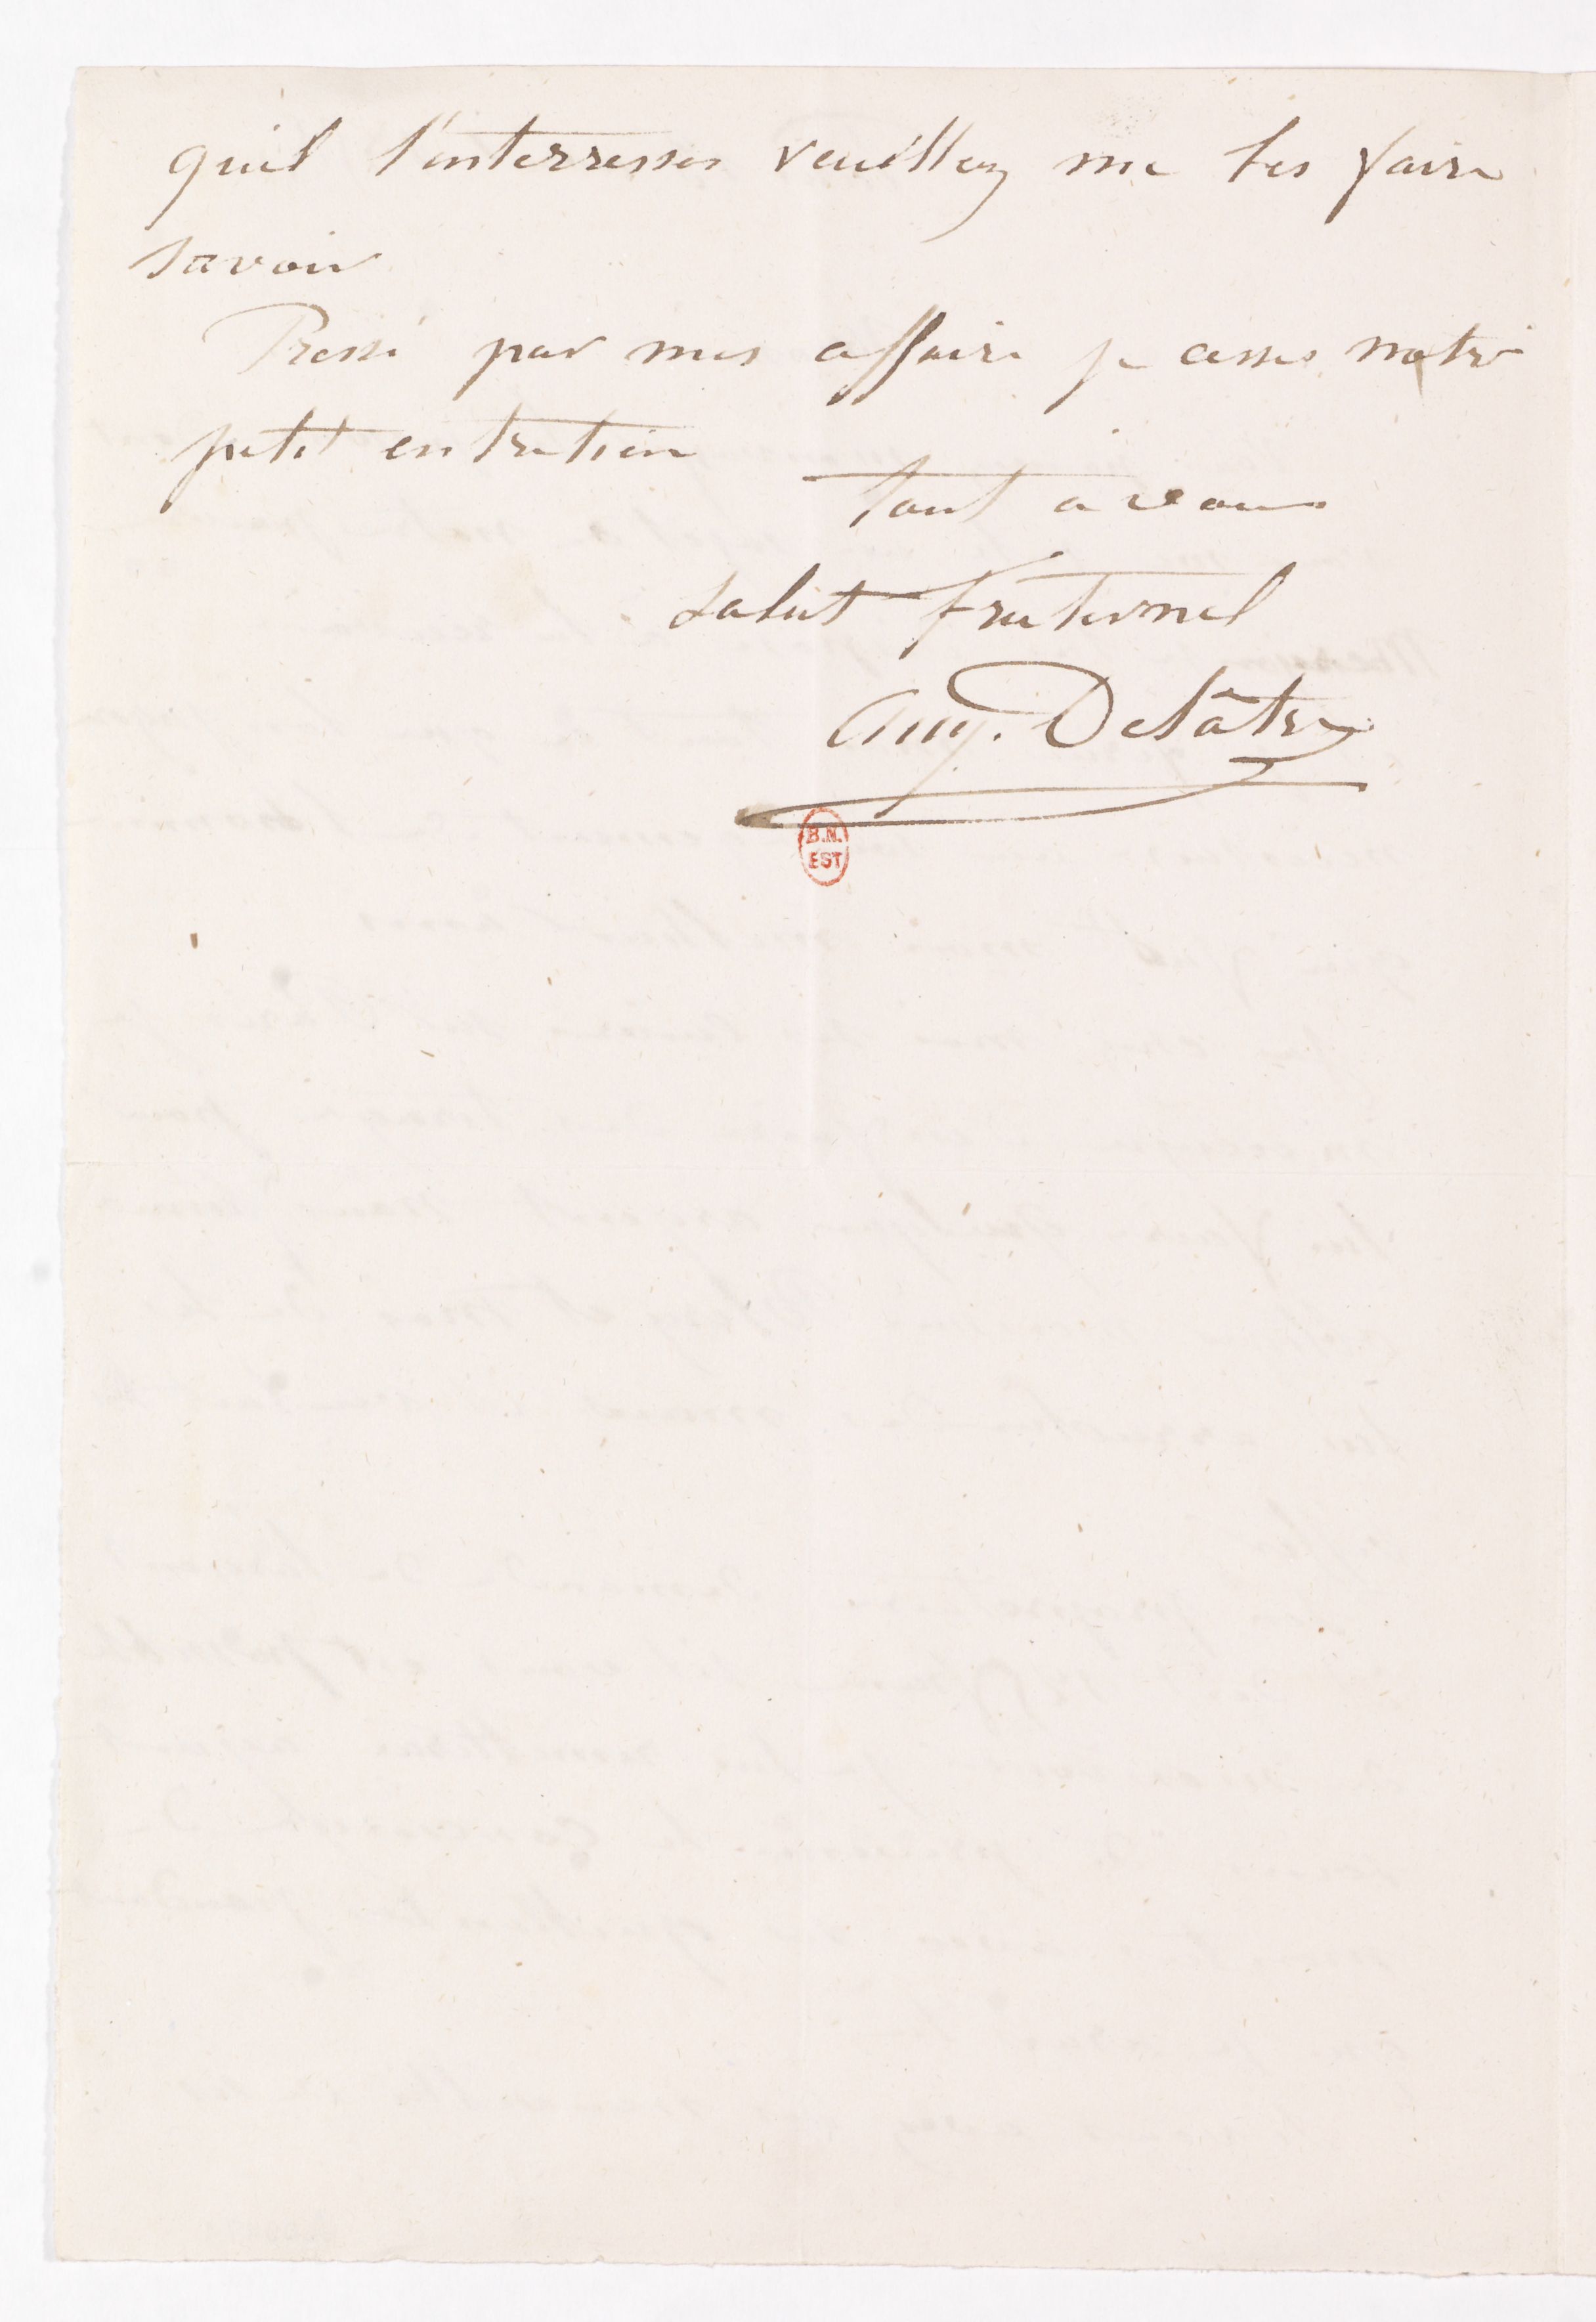 quil l'interresses veuillez me les faire
savoir
Pressé par mes affaire je cesses notre
petit entretien
tout a vous
Salut fraternel
Aug. Delâtre
B.N.
EST